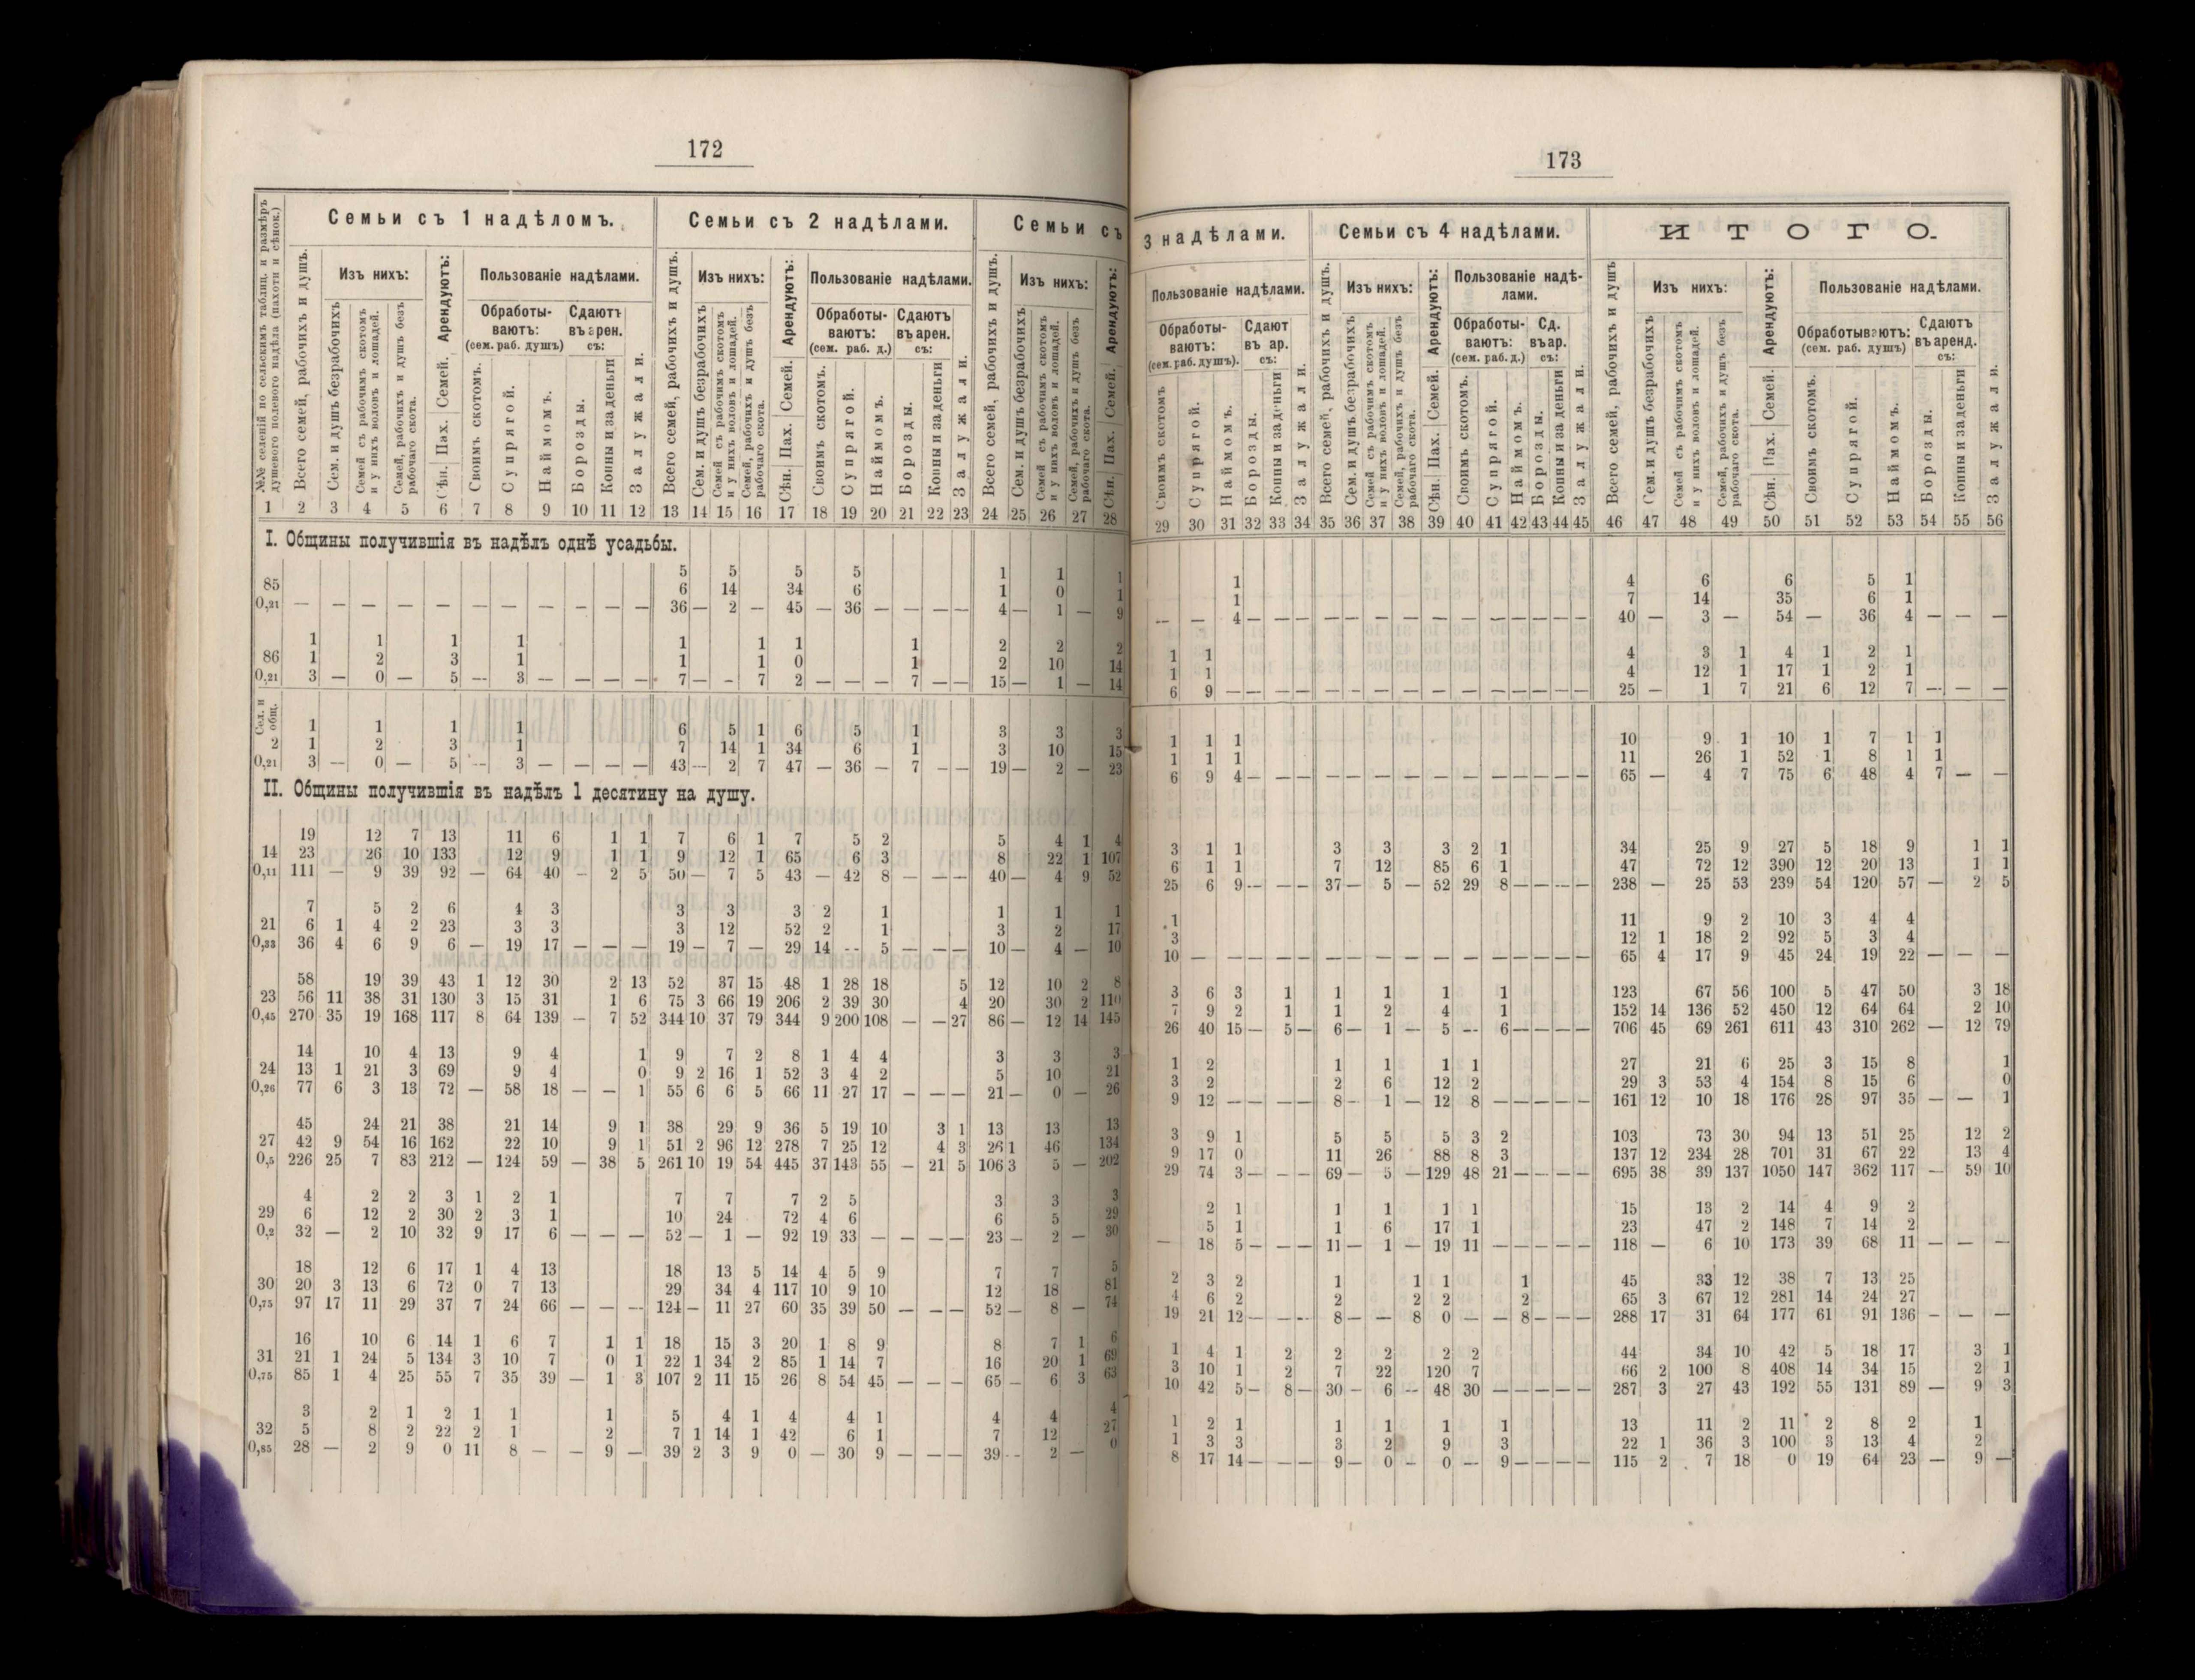 172
Семьи съ 1 надѣломъ. Семьи съ 2 надѣлами. Семьи съ
№№ селеній по сельскимъ таблиц. и размѣръ душевого полевого надѣла (пахоти и сѣнок.)
Всего семей, рабочихъ и душъ.
Изъ нихъ: Арендуютъ: Пользованіе надѣлами.
Сем. и душъ безрабочихъ
Семей съ рабочимъ скотомъ и у нихъ воловъ и лошадей.
Семей, рабочихъ и душъ безъ рабочаго скота.
Сѣн. Пах. Семей.
Обработываютъ: (сем. раб. душъ) Сдаютъ въ арен. съ:
Своимъ скотомъ. Супрягой. Наймомъ. Борозды. Копны и за деньги Залужали.
1 2 3 4 5 6 7 8 9 10 11 12 13 14 15 16 17 18 19 20 21 22 23 24 25 26 27 28
I. Общины получившія въ надѣлъ однѣ усадьбы.
5 5 5 5 1 1 1
85 6 14 34 6 1 0 1
0,21 — — — — — — — — — — — 36 — 2 — 45 — 36 — — — — 4 — 1 — 9
1 1 1 1 1 1 1 1 2 2 2
86 1 2 3 1 1 1 0 1 2 10 14
0,21 3 — 0 — 5 — 3 — — — — 7 — - 7 2 — — — 7 — — 15 — 1 — 14
Сел. и общ.
1 1 1 1 6 5 1 6 5 1 3 3 3
2 1 2 3 1 7 14 1 34 6 1 3 10 15
0,21 3 — 0 — 5 — 3 — — — — 43 — 2 7 47 — 36 — 7 — — 19 — 2 — 23
II. Общины получившія въ надѣлъ 1 десятину на душу.
19 12 7 13 11 6 1 1 7 6 1 7 5 2 5 4 1 4
14 23 26 10 133 12 9 1 1 9 12 1 65 6 3 8 22 1 107
0,11 111 — 9 39 92 — 64 40 — 2 5 50 — 7 5 43 — 42 8 — — — 40 — 4 9 52
7 5 2 6 4 3 3 3 3 2 1 1 1 1
21 6 1 4 2 23 3 3 3 12 52 2 1 3 2 17
0,33 36 4 6 9 6 — 19 17 — — — 19 — 7 — 29 14 -- 5 — — — 10 — 4 — 10
58 19 39 43 1 12 30 2 13 52 37 15 48 1 28 18 5 12 10 2 8
23 56 11 38 31 130 3 15 31 1 6 75 3 66 19 206 2 39 30 4 20 30 2 110
0,45 270 35 19 168 117 8 64 139 — 7 52 344 10 37 79 344 9 200 108 — — 27 86 — 12 14 145
14 10 4 13 9 4 1 9 7 2 8 1 4 4 3 3 3
24 13 1 21 3 69 9 4 0 9 2 16 1 52 3 4 2 5 10 21
0,26 77 6 3 13 72 — 58 18 — — 1 55 6 6 5 66 11 27 17 — — — 21 — 0 — 26
45 24 21 38 21 14 9 1 38 29 9 36 5 19 10 3 1 13 13 13
27 42 9 54 16 162 22 10 9 1 51 2 96 12 278 7 25 12 4 3 26 1 46 134
0,5 226 25 7 83 212 — 124 59 — 38 5 261 10 19 54 445 37 143 55 — 21 5 106 3 5 — 202
4 2 2 3 1 2 1 7 7 7 2 5 3 3 3
29 6 12 2 30 2 3 1 10 24 72 4 6 6 5 29
0,2 32 — 2 10 32 9 17 6 — — — 52 — 1 — 92 19 33 — — — — 23 — 2 — 30
18 12 6 17 1 4 13 18 13 5 14 4 5 9 7 7 5
30 20 3 13 6 72 0 7 13 29 34 4 117 10 9 10 12 18 81
0,75 97 17 11 29 37 7 24 66 — — — 124 — 11 27 60 35 39 50 — — — 52 — 8 — 74
16 10 6 14 1 6 7 1 1 18 15 3 20 1 8 9 8 7 1 6
31 21 1 24 5 134 3 10 7 0 1 22 1 34 2 85 1 14 7 16 20 1 69
0,75 85 1 4 25 55 7 35 39 — 1 3 107 2 11 15 26 8 54 45 — — — 65 — 6 3 63
3 2 1 2 1 1 1 5 4 1 4 4 1 4 4 4
32 5 8 2 22 2 1 2 7 1 14 1 42 6 1 7 12 27
0,85 28 — 2 9 0 11 8 — — 9 — 39 2 3 9 0 — 30 9 — — — 39 -- 2 — 0
173
3 надѣлами. Семьи съ 4 надѣлами. ИТОГО.
Пользованіе надѣлами. Всего семей, рабочихъ и душъ. Изъ нихъ: Арендуютъ: Пользованіе надѣлами. Всего семей, рабочихъ и душъ Изъ нихъ: Арендуютъ: Пользованіе надѣлами.
Обработываютъ: (сем. раб. душъ). Сдают въ ар. съ: Обработываютъ: (сем. раб. д.) Сд. въ ар. съ: Обработываютъ: (сем. раб. душъ) Сдаютъ въ аренд. съ:
29 30 31 32 33 34 35 36 37 38 39 40 41 42 43 44 45 46 47 48 49 50 51 52 53 54 55 56
1 4 6 6 5 1
1 7 14 35 6 1
— — 4 — — — — — — — — — — — — — — 40 — 3 — 54 — 36 4 — — —
1 1 4 3 1 4 1 2 1
1 1 4 12 1 17 1 2 1
6 9 — — — — — — — — — — — — — — — 25 — 1 7 21 6 12 7 — — —
1 1 1 10 9 1 10 1 7 1 1
1 1 1 11 26 1 52 1 8 1 1
6 9 4 — — — — — — — — — — — — — — 65 — 4 7 75 6 48 4 7 — —
3 1 1 3 3 3 2 1 34 25 9 27 5 18 9 1 1
6 1 1 7 12 85 6 1 47 72 12 390 12 20 13 1 1
25 6 9 -- — — 37 — 5 — 52 29 8 — — — — 238 — 25 53 239 54 120 57 — 2 5
1 11 9 2 10 3 4 4
3 12 1 18 2 92 5 3 4
10 — — — — — — — — — — — — — — — — 65 4 17 9 45 24 19 22 — — —
3 6 3 1 1 1 1 1 123 67 56 100 5 47 50 3 18
7 9 2 1 1 2 4 1 152 14 136 52 450 12 64 64 2 10
26 40 15 — 5 — 6 — 1 — 5 -- 6 — — — — 706 45 69 261 611 43 310 262 — 12 79
1 2 1 1 1 1 27 21 6 25 3 15 8 1
3 2 2 6 12 2 29 3 53 4 154 8 15 6 0
9 12 — — — — 8 — 1 — 12 8 — — — — — 161 12 10 18 176 28 97 35 — — 1
3 9 1 5 5 5 3 2 103 73 30 94 13 51 25 12 2
9 17 0 11 26 88 8 3 137 12 234 28 701 31 67 22 13 4
29 74 3 — — — 69 — 5 — 129 48 21 — — — — 695 38 39 137 1050 147 362 117 — 59 10
2 1 1 1 1 1 15 13 2 14 4 9 2
5 1 1 6 17 1 23 47 2 148 7 14 2
— 18 5 — — — 11 — 1 — 19 11 — — — — — 118 — 6 10 173 39 68 11 — — —
2 3 2 1 1 1 1 45 33 12 38 7 13 25
4 6 2 2 2 2 2 65 3 67 12 281 14 24 27
19 21 12 — — -- 8 — — 8 0 — — 8 — — — 288 17 31 64 177 61 91 136 — — —
1 4 1 2 2 2 2 2 44 34 10 42 5 18 17 3 1
3 10 1 2 7 22 120 7 66 2 100 8 408 14 34 15 2 1
10 42 5 — 8 — 30 — 6 -- 48 30 — — — — — 287 3 27 43 192 55 131 89 — 9 3
1 2 1 1 1 1 1 13 11 2 11 2 8 2 1
1 3 3 3 2 9 3 22 1 36 3 100 3 13 4 2
8 17 14 — — — 9 — 0 — 0 — 9 — — — — 115 2 7 18 0 19 64 23 — 9 —